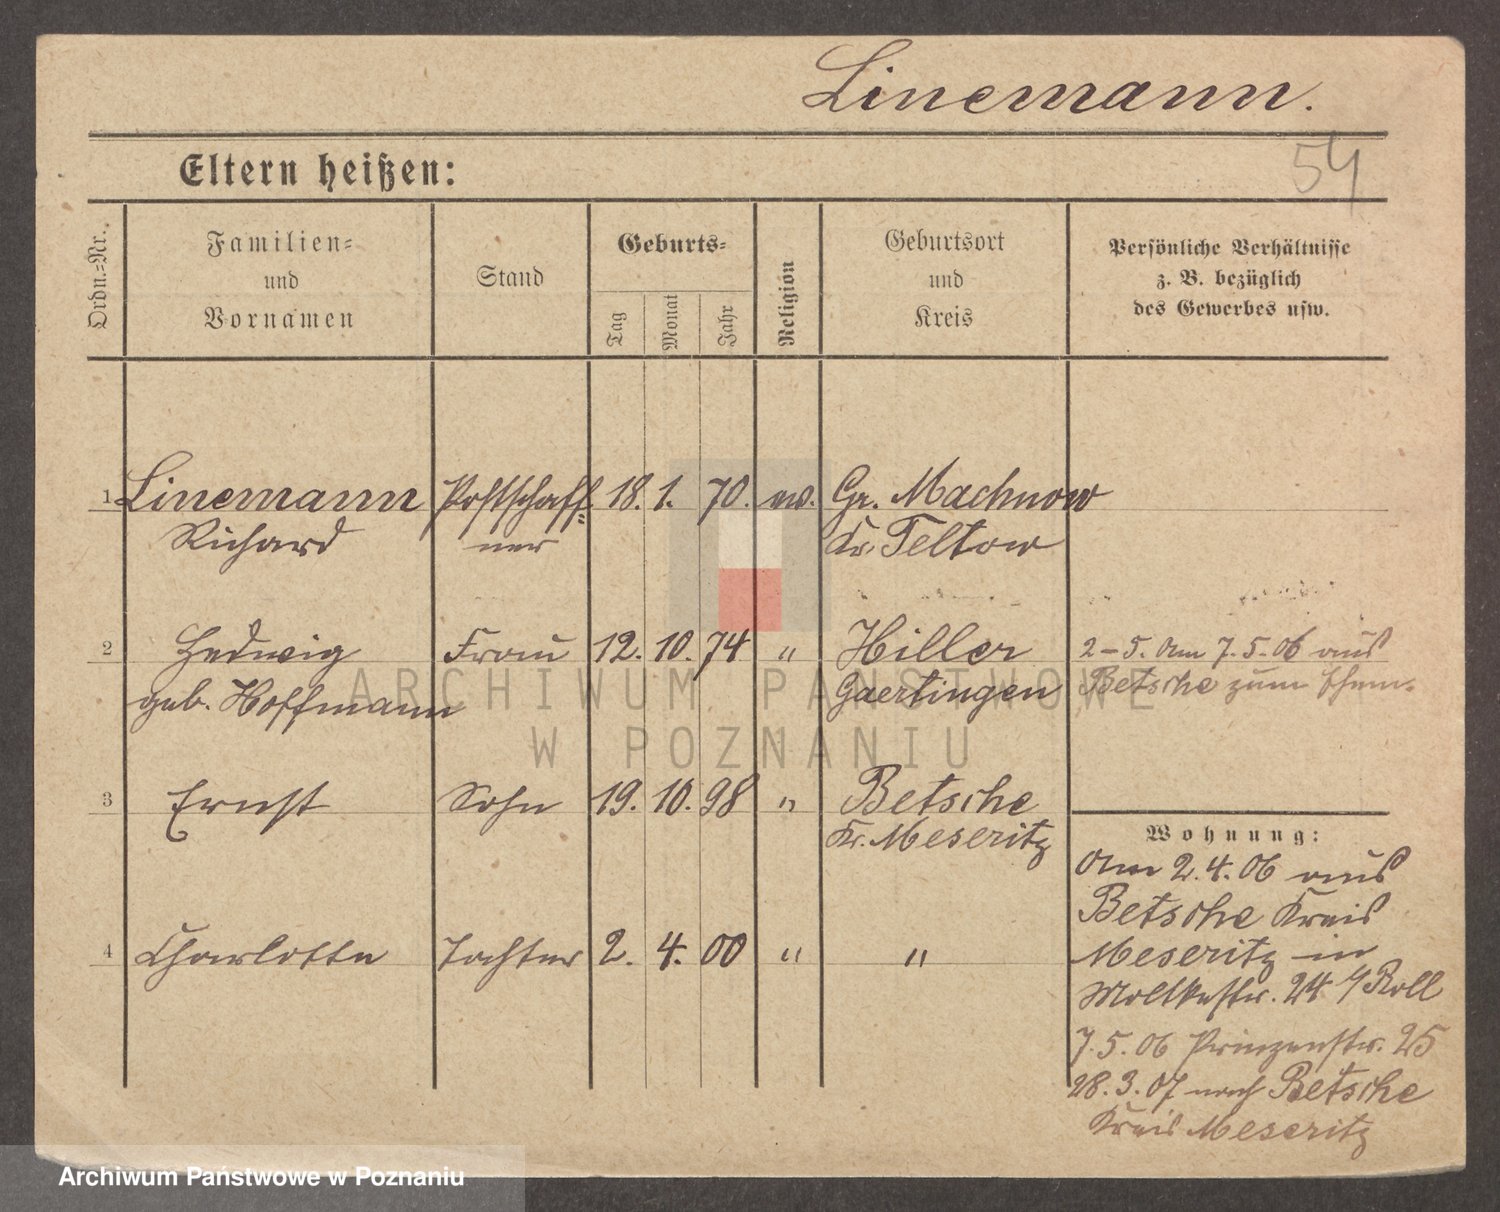 Linemann.
54
Eltern heißen:
Ordn.=Nr.
Familien=
und
Vornamen
Stand
Geburts=
Tag
Monat
Jahr
Religion
Geburtsort
und
Kreis
Persönliche Verhältnisse
z. B. bezüglich
des Gewerbes usw.
1 Linemann Postschaff= 18. 1. 70. ev. Gr. Machnow
Richard ner Kr. Teltow
2 Hedwig Frau 12. 10. 74 " Hiller 2-5. Am 7.5.06 aus
geb. Hoffmann Gaertingen Betsche zum Ehem.
3 Ernst Sohn 19. 10. 98 " Betsche
Kr. Meseritz
Wohnung:
Am 2.4.06 aus
Betsche Kreis
4 Charlotte Tochter 2. 4. 00 " " Meseritz in
Moltkestr. 24 b/ Roll
7.5.06 Prinzenstr. 25
28.3.07 nach Betsche
Kreis Meseritz
ARCHIWUM PAŃSTWOWE
W POZNANIU
Archiwum Państwowe w Poznaniu